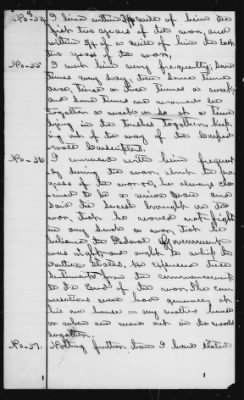 No. 24. I lived within ½ mile of him the
first two years of the war, and
within ½ of a mile of him the last
two years of the war.
No. 25. I met him very frequently, some
times every day, and some times
once, twice or three times a week,
and some times we would be
together a week or so at a time
lying in the bushes together, keep
ing out of the way of the Confed-
erate
No. 26. I conversed with him frequent
ly during the war about the pro-
gress of the war, he always claim
ed to be a Union Man and
said the Secesh brought on the
war, that he would not fight
in any such a war, that he
believed the Federal Government
was right and ought to whip the
Southern States, he expressed these
from the commencement
to the end of the war. These con-
versations were had generally at
his own house or my Mother's house
or when we were out in the woods
together.
No. 27. Nothing further than I have stated